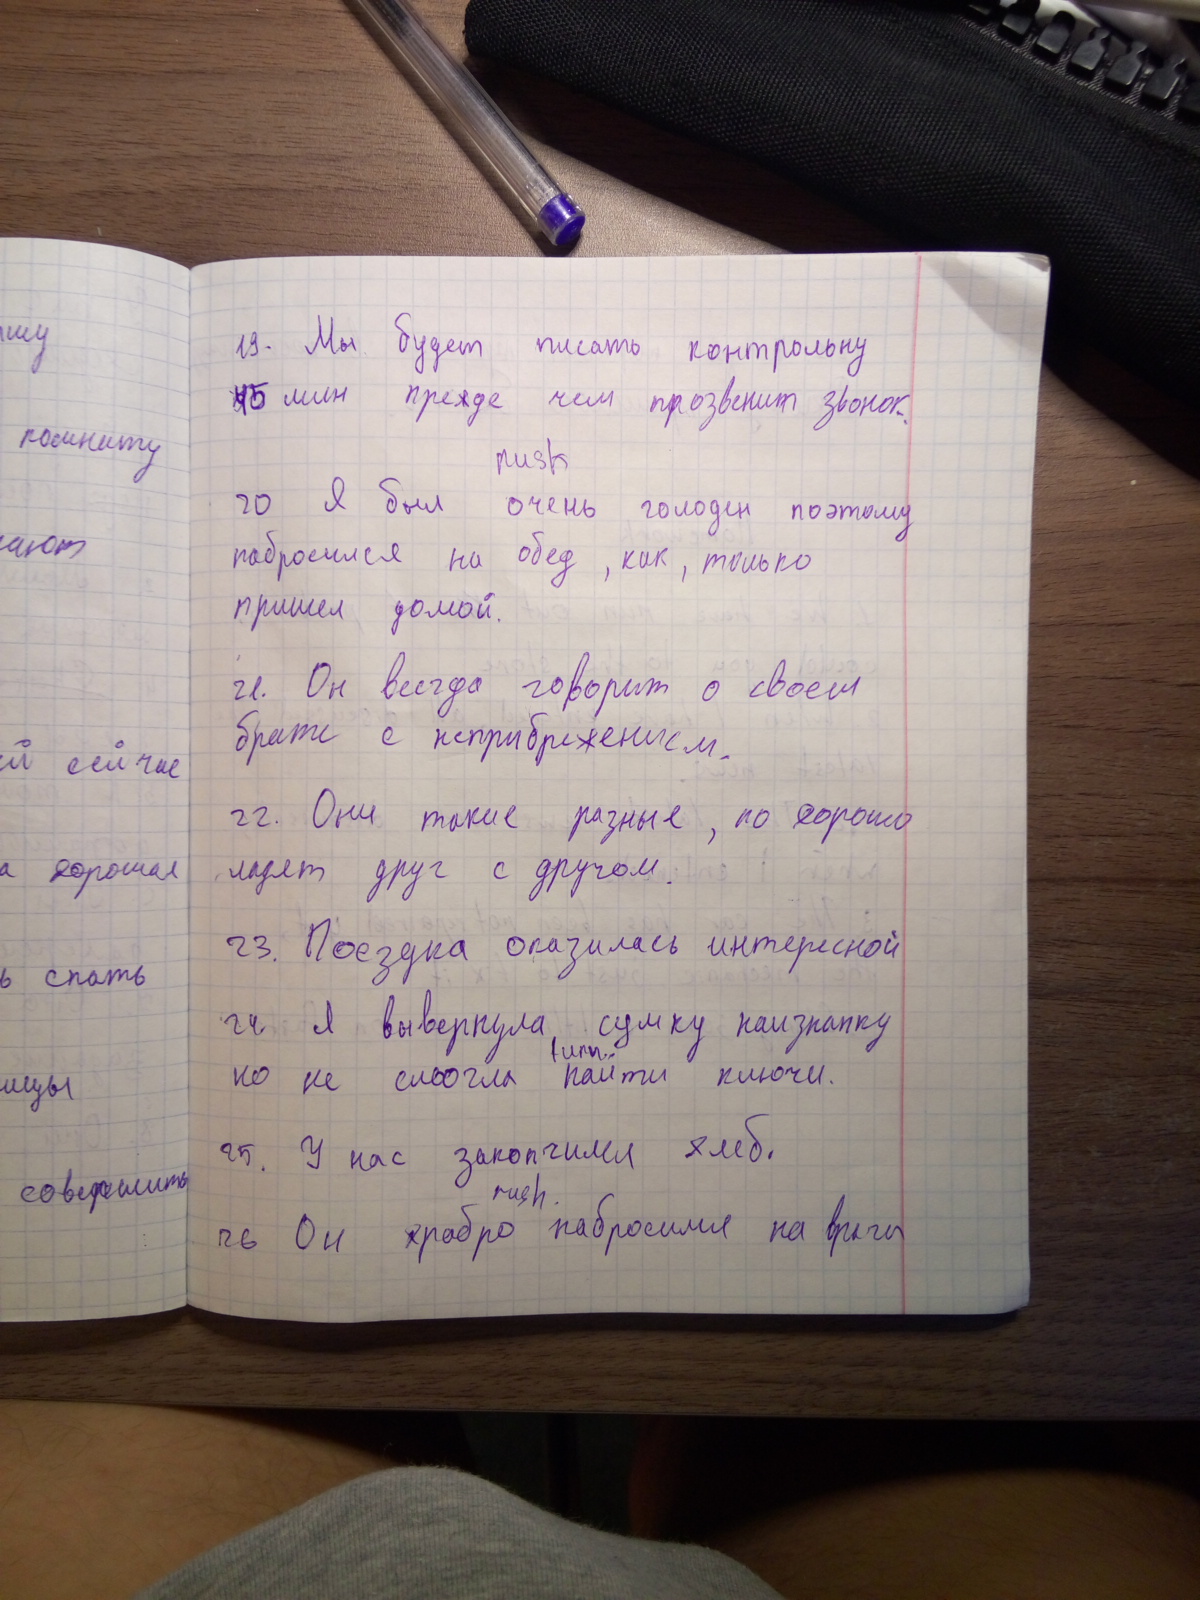 шу
помниту
ают
ей сейчас
а хорошая
ь спать
ицы
совершить
19. Мы будем писать контрольну
45 мин прежде чем прозвенит звонок.
rush
20 Я был очень голоден поэтому
набросился на обед, как, только
пришел домой.
21. Он всегда говорит о своем
брате с неприбрежением.
22. Они такие разные, но хорошо
ладят друг с другом.
23. Поездка оказилась интересной
24. Я вывернула сумку наизнанку
turn..
но не смогла найти ключи.
25. У нас закончился хлеб.
rush.
26 Он храбро набросился на врага